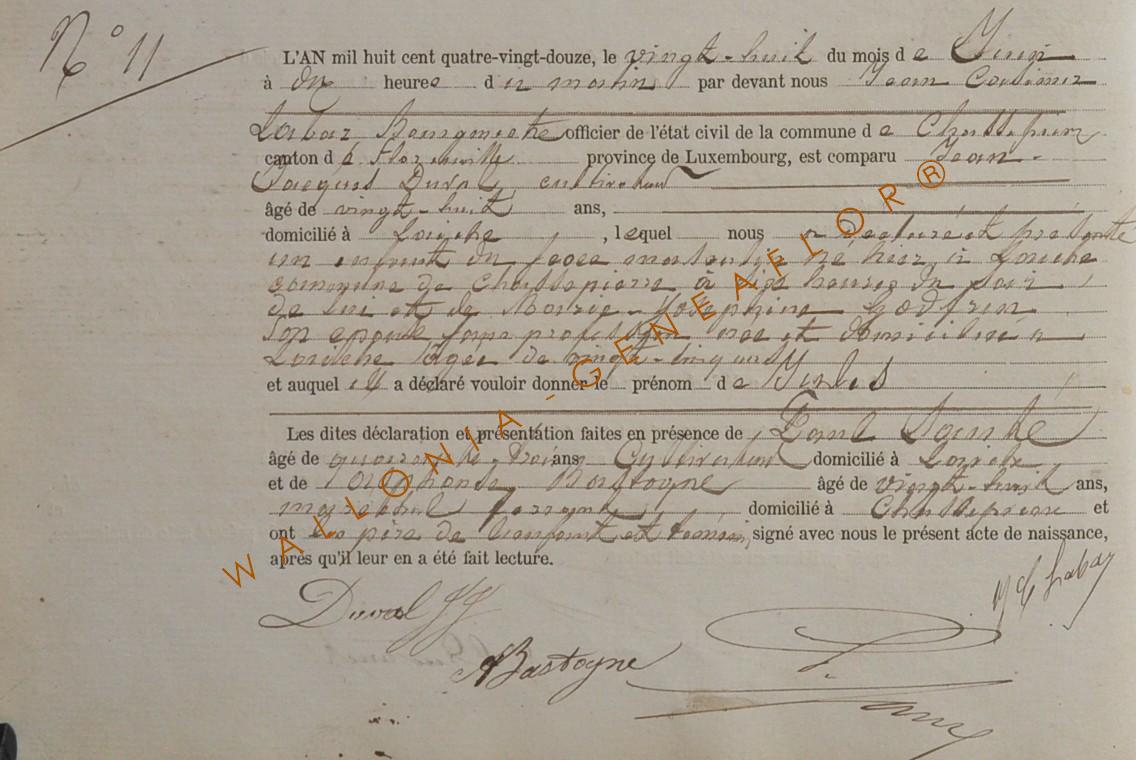 N° 11
L'AN mil huit cent quatre-vingt-douze, le vingt-huit du mois de Juin
à dix heures du matin par devant nous Jean Casimir
Labar Bourgmestre officier de l'état civil de la commune de Chassepierre
canton de Florenville province de Luxembourg, est comparu Jean-
Jacques Duval, cultivateur
âgé de vingt-huit ans,
domicilié à Laiche, lequel nous a déclaré et présenté
un enfant du sexe masculin né hier à Laiche
commune de Chassepierre à heures du soir
de lui et de Marie-Joséphine Godfrin
son épouse profession née et domiciliée à
Laiche âgée de vingt-cinq ans
et auquel il a déclaré vouloir donner le prénom de Jules
Les dites déclaration et présentation faites en présence de
âgé de quarante-trois ans Cultivateur domicilié à Laiche
et de Alphonse Bastogne âgé de vingt-huit ans,
maréchal ferrant domicilié à Chassepierre et
ont le père de l'enfant et témoins, signé avec nous le présent acte de naissance,
après qu'il leur en a été fait lecture.
Duval JJ
JC Labar
ABastogne
WALLONIA-GENEAFLOR®